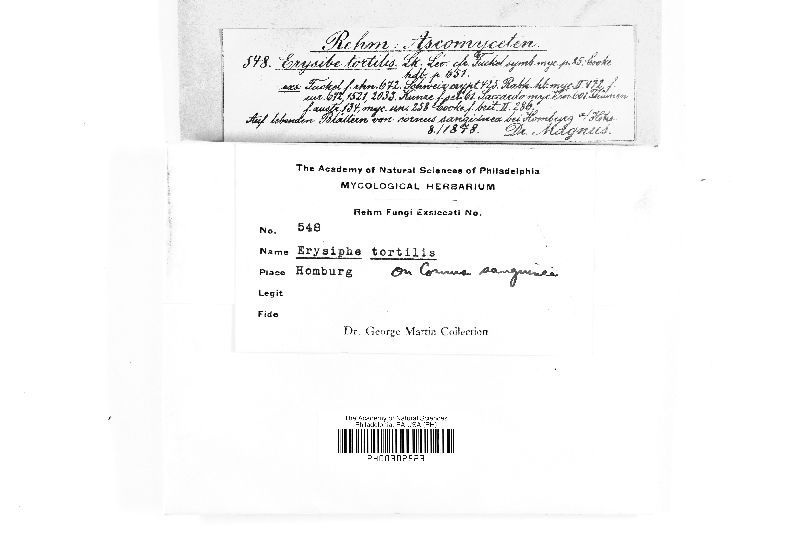 Rehm: Ascomyceten.
548. Erysibe tortilis. Lk. Lev. cfr. Fuckel symb. myc. p. 85. Cooke
hdb. p. 651.
exs. Fuckel f. rhn. 672. Schweiz. crypt. 425. Rabh. hb. myc. II 472, f.
eur. 672, 1521, 2033. Kunze f. sel. 61. Saccardo myc. Ven. 601. Thümen
f. austr. 134, myc. uni. 258 Cooke f. brit. II. 286.
Auf lebenden Blättern von cornus sanguinea bei Homburg a/Höhe
8./1878. Dr. Magnus.
The Academy of Natural Sciences of Philadelphia
MYCOLOGICAL HERBARIUM
Rehm Fungi Exsiccati No.
No. 548
Name Erysiphe tortilis
Place Homburg on Cornus sanguinea
Legit
Fide
Dr. George Martin Collection
The Academy of Natural Sciences
Philadelphia, PA USA (PH)
PH00302523